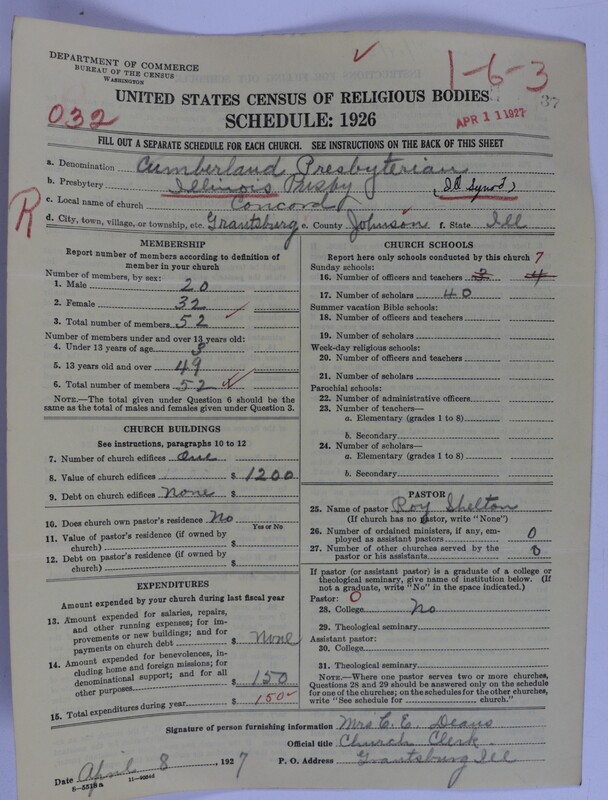 DEPARTMENT OF COMMERCE
BUREAU OF THE CENSUS
WASHINGTON
1-6-3
UNITED STATES CENSUS OF RELIGIOUS BODIES
37
032
SCHEDULE: 1926
APR 11 1927
FILL OUT A SEPARATE SCHEDULE FOR EACH CHURCH. SEE INSTRUCTIONS ON THE BACK OF THIS SHEET
a. Denomination Cumberland Presbyterian
b. Presbytery Illinois Presby (Ill Synod)
R
c. Local name of church Concord
d. City, town, village, or township, etc. Grantsburg e. County Johnson f. State Ill
MEMBERSHIP
Report number of members according to definition of member in your church
Number of members, by sex:
1. Male 20
2. Female 32
3. Total number of members 52
Number of members under and over 13 years old:
4. Under 13 years of age 3
5. 13 years old and over 49
6. Total number of members 52
NOTE.—The total given under Question 6 should be the same as the total of males and females given under Question 3.
CHURCH BUILDINGS
See instructions, paragraphs 10 to 12
7. Number of church edifices one
8. Value of church edifices $ 1200
9. Debt on church edifices None $
10. Does church own pastor's residence No
Yes or No
11. Value of pastor's residence (if owned by church) $
12. Debt on pastor's residence (if owned by church) $
EXPENDITURES
Amount expended by your church during last fiscal year
13. Amount expended for salaries, repairs, and other running expenses; for improvements or new buildings; and for payments on church debt $ None
14. Amount expended for benevolences, including home and foreign missions; for denominational support; and for all other purposes $ 150
15. Total expenditures during year $ 150
CHURCH SCHOOLS
Report here only schools conducted by this church 7
Sunday schools:
16. Number of officers and teachers 3 4
17. Number of scholars 40
Summer vacation Bible schools:
18. Number of officers and teachers
19. Number of scholars
Week-day religious schools:
20. Number of officers and teachers
21. Number of scholars
Parochial schools:
22. Number of administrative officers
23. Number of teachers—
a. Elementary (grades 1 to 8)
b. Secondary
24. Number of scholars—
a. Elementary (grades 1 to 8)
b. Secondary
PASTOR
25. Name of pastor Roy Shelton
(If church has no pastor, write "None")
26. Number of ordained ministers, if any, employed as assistant pastors 0
27. Number of other churches served by the pastor or his assistants 0
If pastor (or assistant pastor) is a graduate of a college or theological seminary, give name of institution below. (If not a graduate, write "No" in the space indicated.)
Pastor: 0
28. College No
29. Theological seminary
Assistant pastor:
30. College
31. Theological seminary
NOTE.—Where one pastor serves two or more churches, Questions 28 and 29 should be answered only on the schedule for one of the churches; on the schedules for the other churches, write "See schedule for church."
Signature of person furnishing information Mrs C. E. Deans
Official title Church Clerk
Date April 8, 1927 P. O. Address Grantsburg Ill